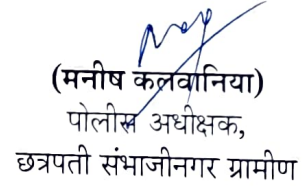 (मनीष कलवानिया)
पोलीस अधीक्षक,
छत्रपती संभाजीनगर ग्रामीण